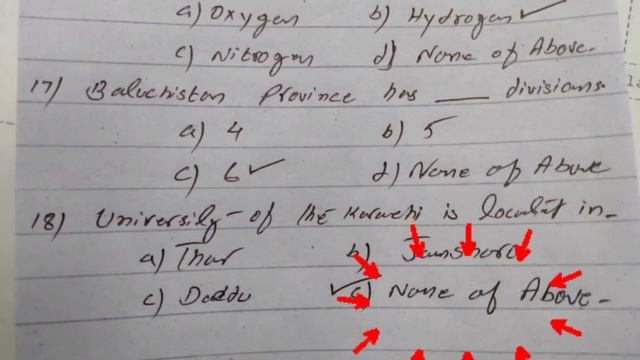 a) Oxygen b) Hydrogen ✓
c) Nitrogen d) None of Above.
17) Baluchistan Province has ___ divisions.
a) 4 b) 5
c) 6 ✓ d) None of Above
18) University of the Karachi is located in_
a) Thar b) Jamshoro
c) Daddu ✓ d) None of Above_